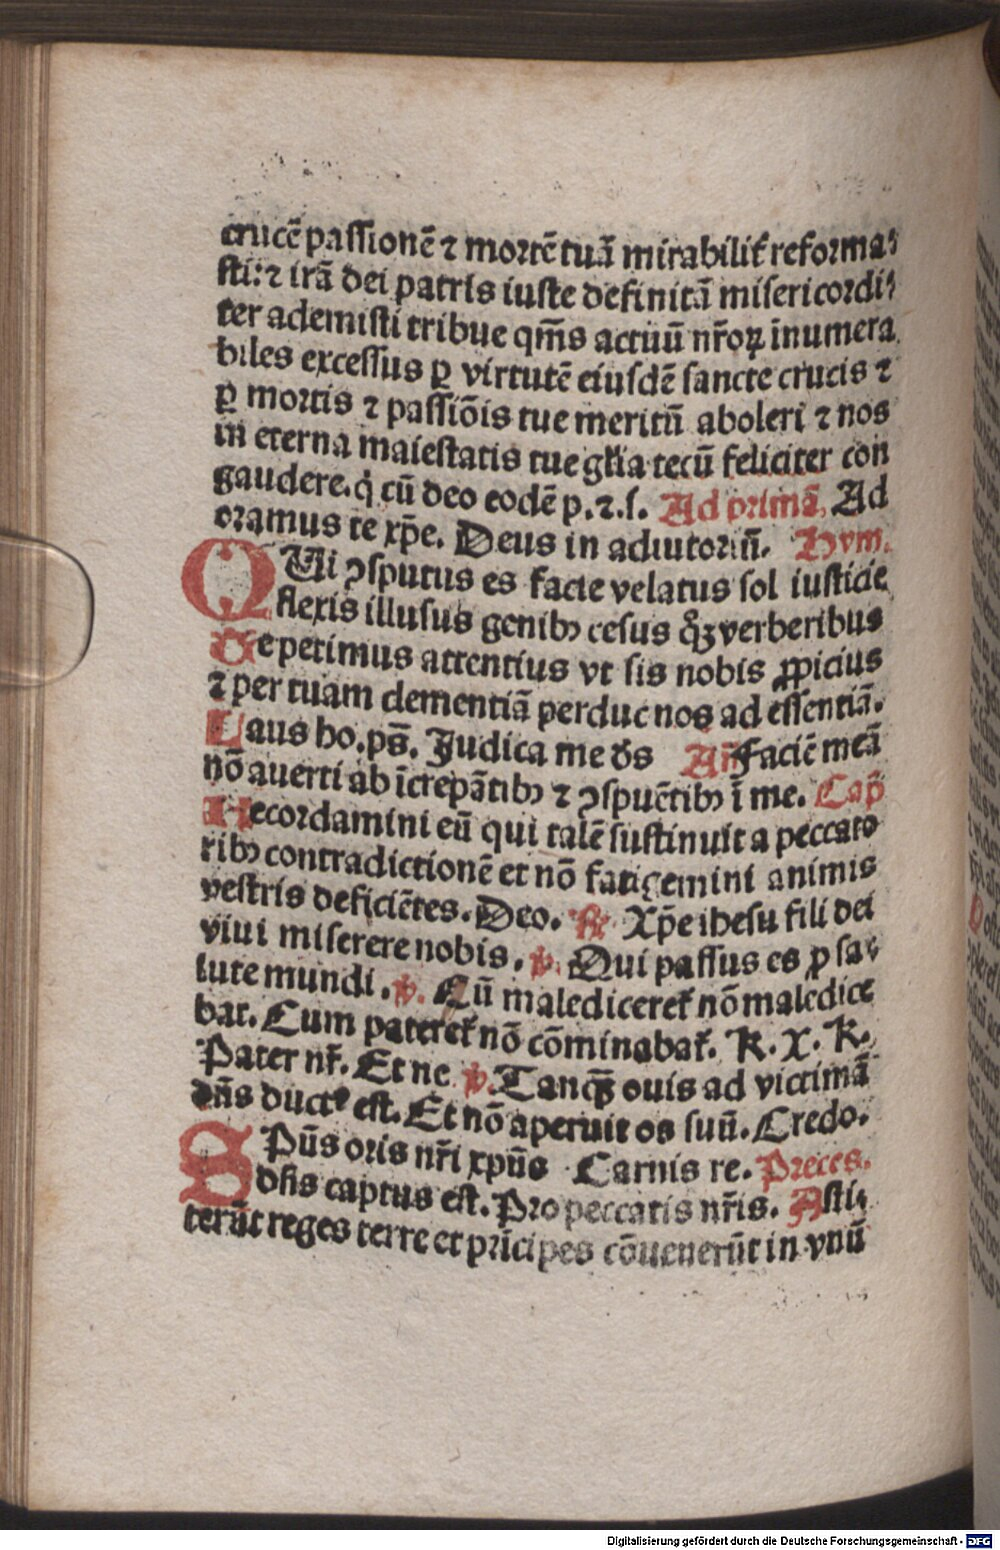 crucē passionē ⁊ mortē tuā mirabiliť reforma⸗
sti: ⁊ irā dei patris iuste definitā misericordi⸗
ter ademisti tribue q̄ms actuū nr̄oꝝ īnumera
biles excessus ꝑ virtutē eiusdē sancte crucis ⁊
ꝑ mortis ⁊ passiōis tue meritū aboleri ⁊ nos
in eterna maiestatis tue gl̄ia tecū feliciter con
gaudere. q̇ cū deo eodē p. ⁊. s. Ad primā. Ad
oramus te xp̄e. Deus in adiutoriū. Hym.
QUi ꝯsputus es facie velatus sol iusticie
flexis illusus genibꝰ cesus qͣꝫ verberibus
Te petimus attentius vt sis nobis ꝓpicius
⁊ per tuam clementiā perduc nos ad essentiā.
Laus ho. ps̄. Judica me ds̄ An̄ Faciē meā
nō auerti ab īcrepātibꝰ ⁊ ꝯspuētibꝰ ī me. Cap̄
Recordamini eū qui talē sustinuit a peccato
ribꝰ contradictionē et nō fatigemini animis
vestris deficiētes. Deo. ℟ Xp̄e ihesu fili dei
viui miserere nobis. ℣. Qui passus es ꝓ sa⸗
lute mundi. ℣. Cū malediceret̄ nō maledice
bat. Cum pateret̄ nō cōminabat̄. K. X. K.
Pater nr̄. Et ne ℣. Tanqͣꝫ ouis ad victimā
dn̄s ductꝰ est. Et nō aperuit os suū. Credo.
SPūs oris nr̄i xpūs Carnis re. Preces.
dn̄s captus est. Pro peccatis nr̄is. Asti⸗
terūt reges terre et prīcipes cōuenerūt in vnū
Digitalisierung gefördert durch die Deutsche Forschungsgemeinschaft - DFG